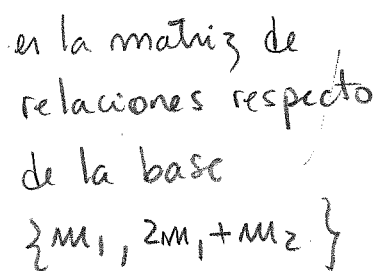 es la matriz de
relaciones respecto
de la base
{m₁, 2m₁+m₂}